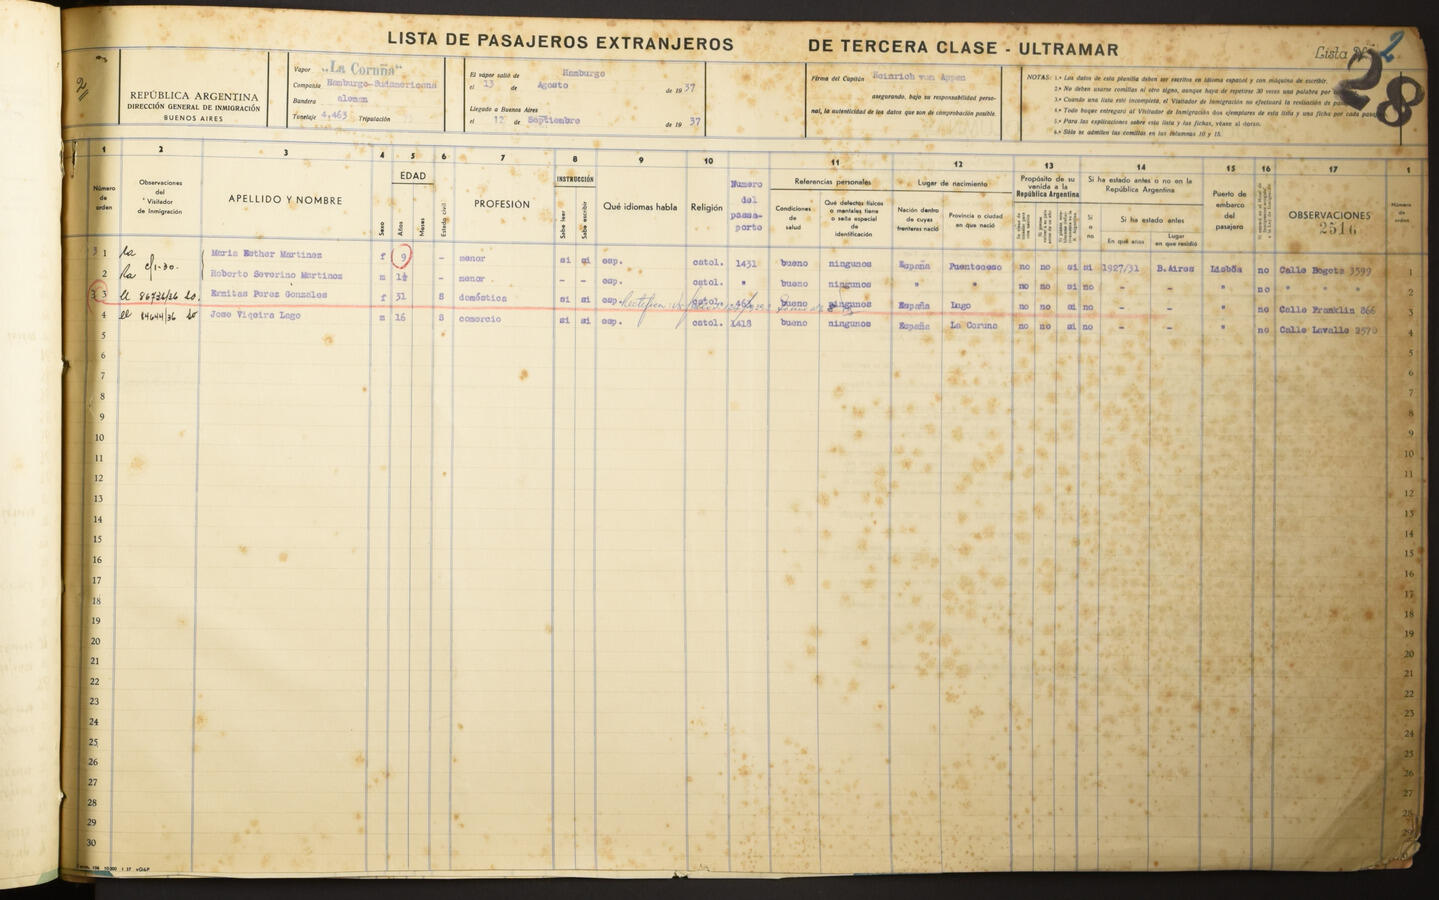 LISTA DE PASAJEROS EXTRANJEROS DE TERCERA CLASE - ULTRAMAR
Lista Nº 2
28
REPÚBLICA ARGENTINA
DIRECCIÓN GENERAL DE INMIGRACIÓN
BUENOS AIRES
Vapor "La Coruña"
Compañía Hamburgo-Sudamericana
Bandera aleman
Tonelaje 4,463 Tripulación
El vapor salió de Hamburgo
el 13 de Agosto de 1937
Llegado a Buenos Aires
el 12 de Septiembre de 1937
Firma del Capitán Heinrich von Appen
asegurando, bajo su responsabilidad perso-
nal, la autenticidad de los datos que son de comprobación posible.
NOTAS: 1.a Los datos de esta planilla deben ser escritos en idioma español y con máquina de escribir.
2.a No deben usarse comillas ni otro signo, aunque haya de repetirse 30 veces una palabra por
3.a Cuando una lista esté incompleta, el Visitador de Inmigración no efectuará la revisación de
4.a Todo buque entregará al Visitador de Inmigración dos ejemplares de esta lista y una ficha por cada
5.a Para las explicaciones sobre esta lista y las fichas, véase al dorso.
6.a Sólo se admiten las comillas en las columnas 10 y 15.
1 2 3 4 5 6 7 8 9 10 11 12 13 14 15 16 17 1
Número de orden
Observaciones del Visitador de Inmigración
APELLIDO Y NOMBRE
Sexo
EDAD
Años
Meses
Estado civil
PROFESIÓN
INSTRUCCIÓN
Sabe leer
Sabe escribir
Qué idiomas habla
Religión
Numero del passa-porto
Referencias personales
Condiciones de salud
Qué defectos físicos o mentales tiene o seña especial de identificación
Lugar de nacimiento
Nación dentro de cuyas fronteras nació
Provincia o ciudad en que nació
Propósito de su venida a la República Argentina
Si ha estado antes o no en la República Argentina
Si o no
Si ha estado antes
En qué años
Lugar en que residió
Puerto de embarco del pasajero
OBSERVACIONES
2516
Número de orden
1 Maria Esther Martinez f 9 - menor si si esp. catol. 1431 bueno ningunos España Puenteceso no no si si 1927/31 B.Aires Lisbôa no Calle Bogota 3599 1
2 Roberto Severino Martinez m 1½ - menor - - esp. catol. " bueno ningunos " " no no si no - - " no " " " 2
3 86736/36 Ermitas Perez Gonzales f 31 S doméstica si si esp. catol. 463 bueno ningunos España Lugo no no si no - - " no Calle Franklin 866 3
4 84644/36 Jose Viqeira Lago m 16 S comercio si si esp. catol. 1418 bueno ningunos España La Coruno no no si no - - " no Calle Lavalle 2570 4
5 5
6 6
7 7
8 8
9 9
10 10
11 11
12 12
13 13
14 14
15 15
16 16
17 17
18 18
19 19
20 20
21 21
22 22
23 23
24 24
25 25
26 26
27 27
28 28
29 29
30